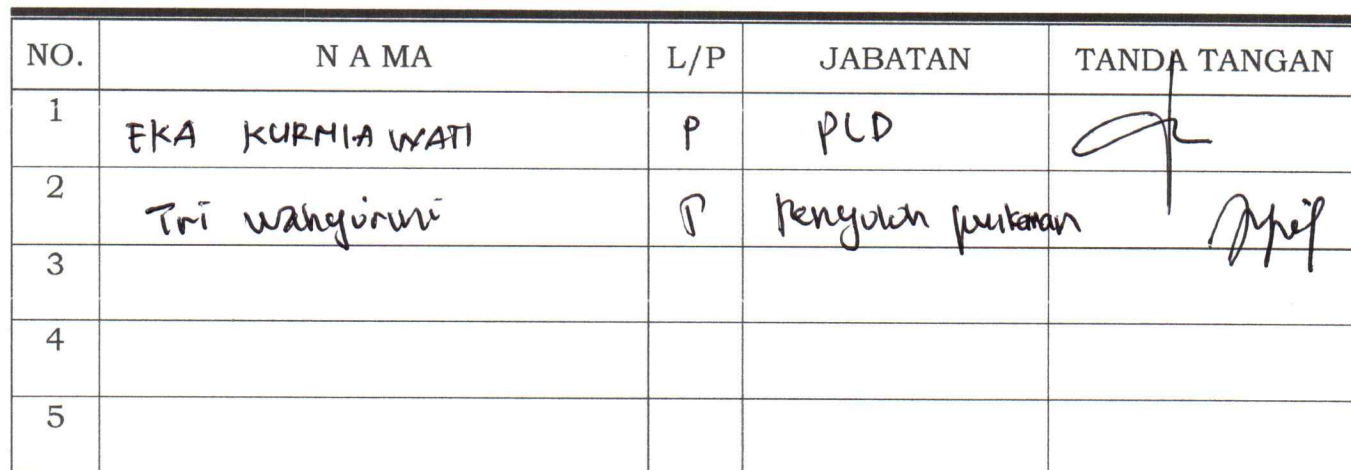 NO. N A MA L/P JABATAN TANDA TANGAN
1 EKA KURNIAWATI P PLD
2 Tri Wahyuruni P Penyuluh perikanan
3
4
5